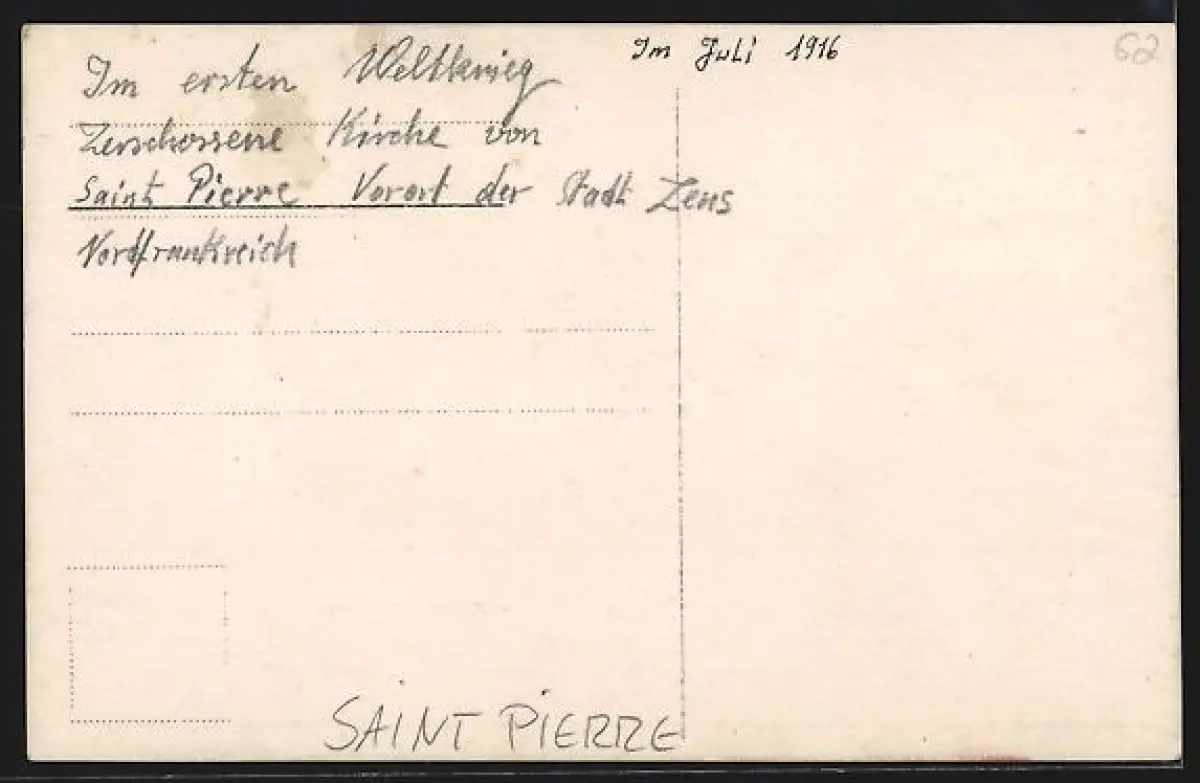 Im ersten Weltkrieg
Im Juli 1916
62
Zerschossene Kirche von
Saint Pierre Vorort der Stadt Lens
Nordfrankreich
SAINT PIERRE